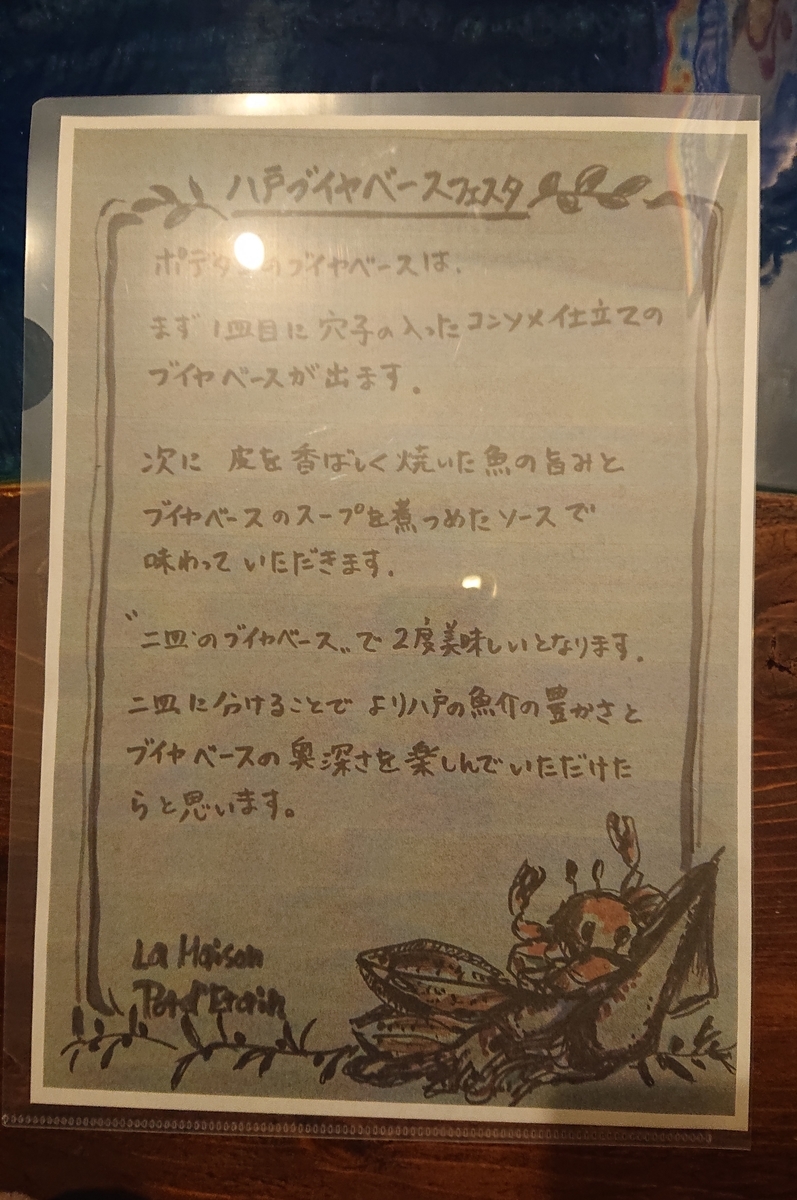 八戸ブイヤベースフェスタ
ポデタ のブイヤベースは、
まず 1皿目に 穴子の入ったコンソメ仕立ての
ブイヤベースが出ます。
次に 皮を香ばしく焼いた魚の旨みと
ブイヤベースのスープを煮つめたソースで
味わっていただきます。
"二皿のブイヤベース"で2度美味しいとなります。
二皿に分けることでより八戸の魚介の豊かさと
ブイヤベースの奥深さを楽しんでいただけた
らと思います。
La Maison
Pot d'Etain